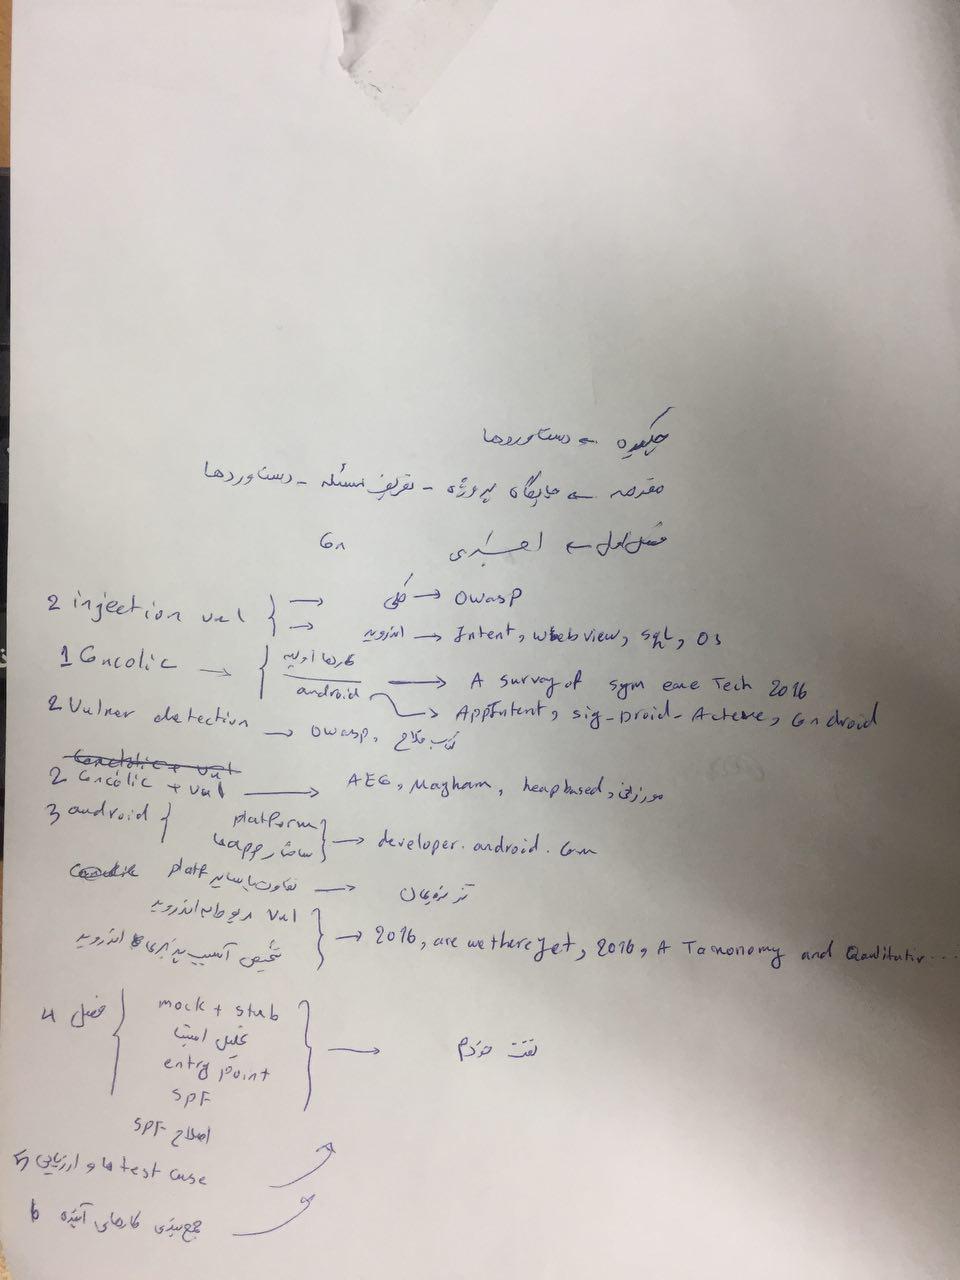 چکیده ← دستاوردها
مقدمه ← جایگاه پروژه - تعریف مسئله - دستاوردها
فصل اول ←
2 injection vul { → کلی → owasp
→ اندروید → Intent, webview, sql, os
1 Concolic → { کارها اولیه
android → A survey of sym exe Tech 2016
→ AppIntent, sig-Droid-Acteve, Condroid
2 Vulner detection → owasp,
2 Concolic + vul → AEG, Mayham, heap based,
3 android { platform
ساختار appها } → developer.android.com
تفاوت با سایر platf →
vul مربوط به اندروید
تشخیص آسیب پذیری اندروید } → 2016, are we there yet, 2016, A Taxonomy and Qualitativ...
فصل 4 { mock + stub
تحلیل ایستا
entry point
SPF } →
اصلاح SPF
5 test case ها و ارزیابی
6 جمع بندی کارهای آینده